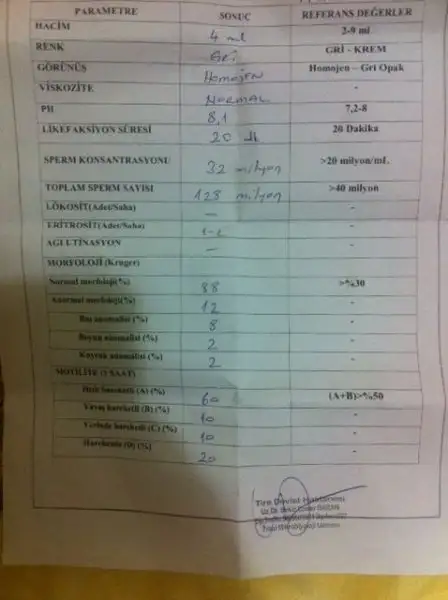 PARAMETRE SONUÇ REFERANS DEĞERLER
HACİM 4 ml 2-9 ml
RENK Gri GRİ - KREM
GÖRÜNÜŞ Homojen Homojen - Gri Opak
VİSKOZİTE NORMAL -
PH 8,1 7,2-8
LİKEFAKSİYON SÜRESİ 20 dk 20 Dakika
SPERM KONSANTRASYONU 32 milyon >20 milyon/mL
TOPLAM SPERM SAYISI 128 milyon >40 milyon
LÖKOSİT(Adet/Saha) — -
ERİTROSİT(Adet/Saha) 1-2 -
AGLUTİNASYON — -
MORFOLOJİ (Kruger)
Normal morfoloji(%) 88 >%30
Anormal morfoloji(%) 12 -
Baş anomalisi (%) 8 -
Boyun anomalisi (%) 2 -
Kuyruk anomalisi (%) 2 -
MOTİLİTE (1 SAAT)
Hızlı hareketli (A) (%) 60 (A+B)>%50
Yavaş hareketli (B) (%) 10 -
Yerinde hareketli (C) (%) 10 -
Hareketsiz (D) (%) 20 -
Tire Devlet Hastanesi